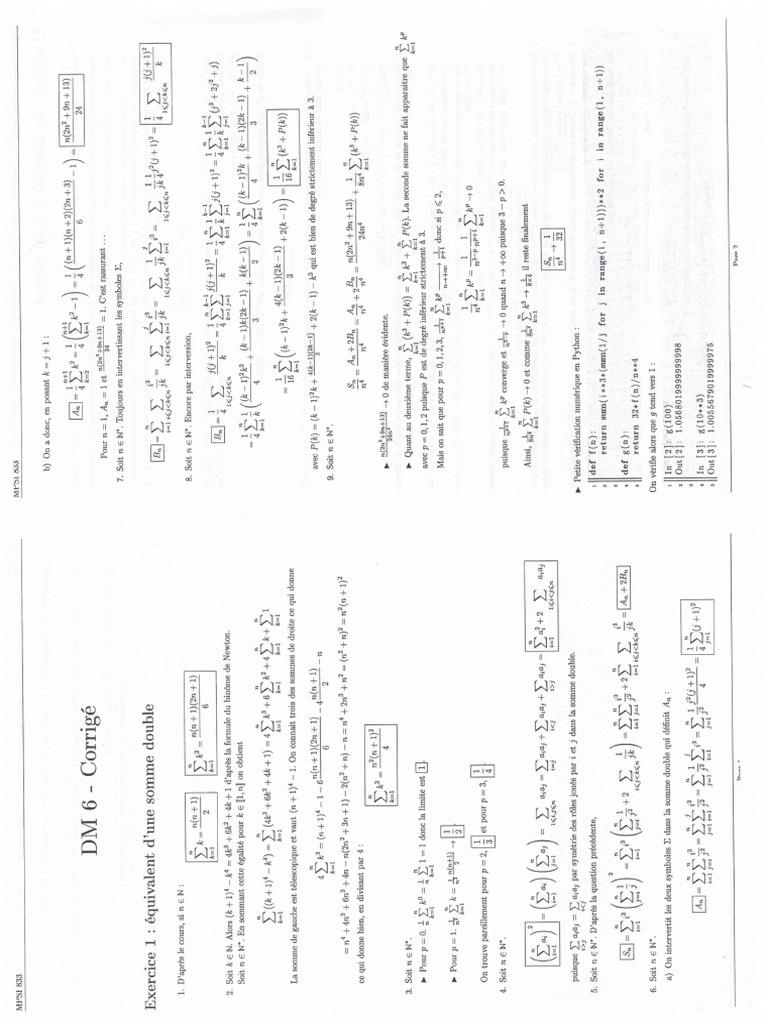 MPSI 833
DM 6 - Corrigé
Exercice 1 : équivalent d'une somme double
1. D'après le cours, si n ∈ ℕ :
∑_{k=1}^n k = n(n+1)/2   ∑_{k=1}^n k² = n(n+1)(2n+1)/6
2. Soit k ∈ ℕ. Alors (k+1)⁴ − k⁴ = 4k³ + 6k² + 4k + 1 d'après la formule du binôme de Newton.
Soit n ∈ ℕ*. En sommant cette égalité pour k ∈ ⟦1,n⟧ on obtient
∑_{k=1}^n ((k+1)⁴ − k⁴) = ∑_{k=1}^n (4k³ + 6k² + 4k + 1) = 4∑_{k=1}^n k³ + 6∑_{k=1}^n k² + 4∑_{k=1}^n k + ∑_{k=1}^n 1
La somme de gauche est télescopique et vaut (n+1)⁴ − 1. On connait trois des sommes de droite ce qui donne
4∑_{k=1}^n k³ = (n+1)⁴ − 1 − 6 n(n+1)(2n+1)/6 − 4 n(n+1)/2 − n
= n⁴ + 4n³ + 6n² + 4n − n(2n² + 3n + 1) − 2(n² + n) − n = n⁴ + 2n³ + n² = (n² + n)² = n²(n+1)²
ce qui donne bien, en divisant par 4 :
∑_{k=1}^n k³ = n²(n+1)²/4
3. Soit n ∈ ℕ*.
► Pour p = 0. 1/n ∑_{k=1}^n k⁰ = 1/n ∑_{k=1}^n 1 = 1 donc la limite est 1
► Pour p = 1. 1/n² ∑_{k=1}^n k = 1/n² n(n+1)/2 → 1/2
On trouve pareillement pour p = 2, 1/3 et pour p = 3, 1/4
4. Soit n ∈ ℕ*.
(∑_{i=1}^n a_i)² = (∑_{i=1}^n a_i)(∑_{j=1}^n a_j) = ∑_{1≤i,j≤n} a_i a_j = ∑_{i=j} a_i a_j + ∑_{i<j} a_i a_j + ∑_{i>j} a_i a_j = ∑_{i=1}^n a_i² + 2 ∑_{1≤i<j≤n} a_i a_j
puisque ∑_{i>j} a_i a_j = ∑_{i<j} a_i a_j par symétrie des rôles joués par i et j dans la somme double.
5. Soit n ∈ ℕ*. D'après la question précédente,
S_n = ∑_{i=1}^n i³ (∑_{j=i}^n 1/j)² = ∑_{i=1}^n i³ (∑_{j=i}^n 1/j² + 2 ∑_{i≤j<k≤n} 1/jk) = ∑_{i=1}^n ∑_{j=i}^n i³/j² + 2 ∑_{i=1}^n ∑_{i≤j<k≤n} i³/jk = A_n + 2B_n
6. Soit n ∈ ℕ*.
a) On intervertit les deux symboles Σ dans la somme double qui définit A_n :
A_n = ∑_{i=1}^n ∑_{j=i}^n i³/j² = ∑_{j=1}^n ∑_{i=1}^j i³/j² = ∑_{j=1}^n 1/j² ∑_{i=1}^j i³ = ∑_{j=1}^n 1/j² j²(j+1)²/4 = 1/4 ∑_{j=1}^n (j+1)²
MPSI 833
b) On a donc, en posant k = j + 1 :
A_n = 1/4 ∑_{k=2}^{n+1} k² = 1/4 (∑_{k=1}^{n+1} k² − 1) = 1/4 ((n+1)(n+2)(2n+3)/6 − 1) = n(2n² + 9n + 13)/24
Pour n = 1, A_n = 1 et n(2n²+9n+13)/24 = 1. C'est rassurant ...
7. Soit n ∈ ℕ*. Toujours en intervertissant les symboles Σ,
B_n = ∑_{i=1}^n ∑_{i≤j<k≤n} i³/jk = ∑_{1≤j<k≤n} ∑_{i=1}^j i³/jk = ∑_{1≤j<k≤n} 1/jk ∑_{i=1}^j i³ = ∑_{1≤j<k≤n} 1/jk 1/4 j²(j+1)² = 1/4 ∑_{1≤j<k≤n} j(j+1)²/k
8. Soit n ∈ ℕ*. Encore par interversion,
B_n = 1/4 ∑_{1≤j<k≤n} j(j+1)²/k = 1/4 ∑_{k=1}^n ∑_{j=1}^{k−1} j(j+1)²/k = 1/4 ∑_{k=1}^n 1/k ∑_{j=1}^{k−1} j(j+1)² = 1/4 ∑_{k=1}^n 1/k ∑_{j=1}^{k−1} (j³ + 2j² + j)
= 1/4 ∑_{k=1}^n 1/k ((k−1)²k²/4 + (k−1)k(2k−1)/3 + k(k−1)/2) = 1/4 ∑_{k=1}^n ((k−1)²k/4 + (k−1)(2k−1)/3 + (k−1)/2)
= 1/16 ∑_{k=1}^n ((k−1)²k + 4(k−1)(2k−1)/3 + 2(k−1)) = 1/16 ∑_{k=1}^n (k³ + P(k))
avec P(k) = (k−1)²k + 4(k−1)(2k−1)/3 + 2(k−1) − k³ qui est bien de degré strictement inférieur à 3.
9. Soit n ∈ ℕ*.
S_n/n⁴ = (A_n + 2B_n)/n⁴ = A_n/n⁴ + 2 B_n/n⁴ = n(2n² + 9n + 13)/24n⁴ + 1/8n⁴ ∑_{k=1}^n (k³ + P(k))
► n(2n²+9n+13)/24n⁴ → 0 de manière évidente.
► Quant au deuxième terme, ∑_{k=1}^n (k³ + P(k)) = ∑_{k=1}^n k³ + ∑_{k=1}^n P(k). La seconde somme ne fait apparaitre que ∑_{k=1}^n k^p
avec p = 0, 1, 2 puisque P est de degré inférieur strictement à 3.
Mais on sait que pour p = 0, 1, 2, 3, 1/n^{p+1} ∑_{k=1}^n k^p → (n→+∞) 1/(p+1) donc si p ≤ 2,
1/n⁴ ∑_{k=1}^n k^p = 1/n^{3−p} 1/n^{p+1} ∑_{k=1}^n k^p → 0
puisque 1/n^{p+1} ∑_{k=1}^n k^p converge et 1/n^{3−p} → 0 quand n → +∞ puisque 3 − p > 0.
Ainsi, 1/8n⁴ ∑_{k=1}^n P(k) → 0 et comme 1/8n⁴ ∑_{k=1}^n k³ → 1/(8×4) il reste finalement
S_n/n⁴ → 1/32
► Petite vérification numérique en Python :
1 def f(n):
2 return sum(i**3*(sum(1/j for j in range(i, n+1)))**2 for i in range(1, n+1))
3
4 def g(n):
5 return 32*f(n)/n**4
On vérifie alors que g tend vers 1 :
1 In [2]: g(100)
2 Out[2]: 1.0568019999999998
3
4 In [3]: g(10**3)
5 Out[3]: 1.0055679019999975
Page 2